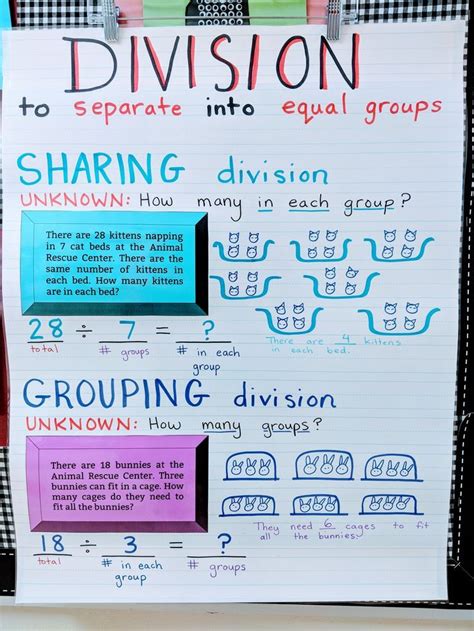 DIVISION
to separate into equal groups
SHARING division
UNKNOWN: How many in each group?
There are 28 kittens napping
in 7 cat beds at the Animal
Rescue Center. There are the
same number of kittens in
each bed. How many kittens
are in each bed?
28 ÷ 7 = ?
total # groups # in each
group
There are 4 kittens
in each bed.
GROUPING division
UNKNOWN: How many groups?
There are 18 bunnies at the
Animal Rescue Center. Three
bunnies can fit in a cage. How
many cages do they need to
fit all the bunnies?
They need 6 cages to fit
all the bunnies.
18 ÷ 3 = ?
total # in each # groups
group